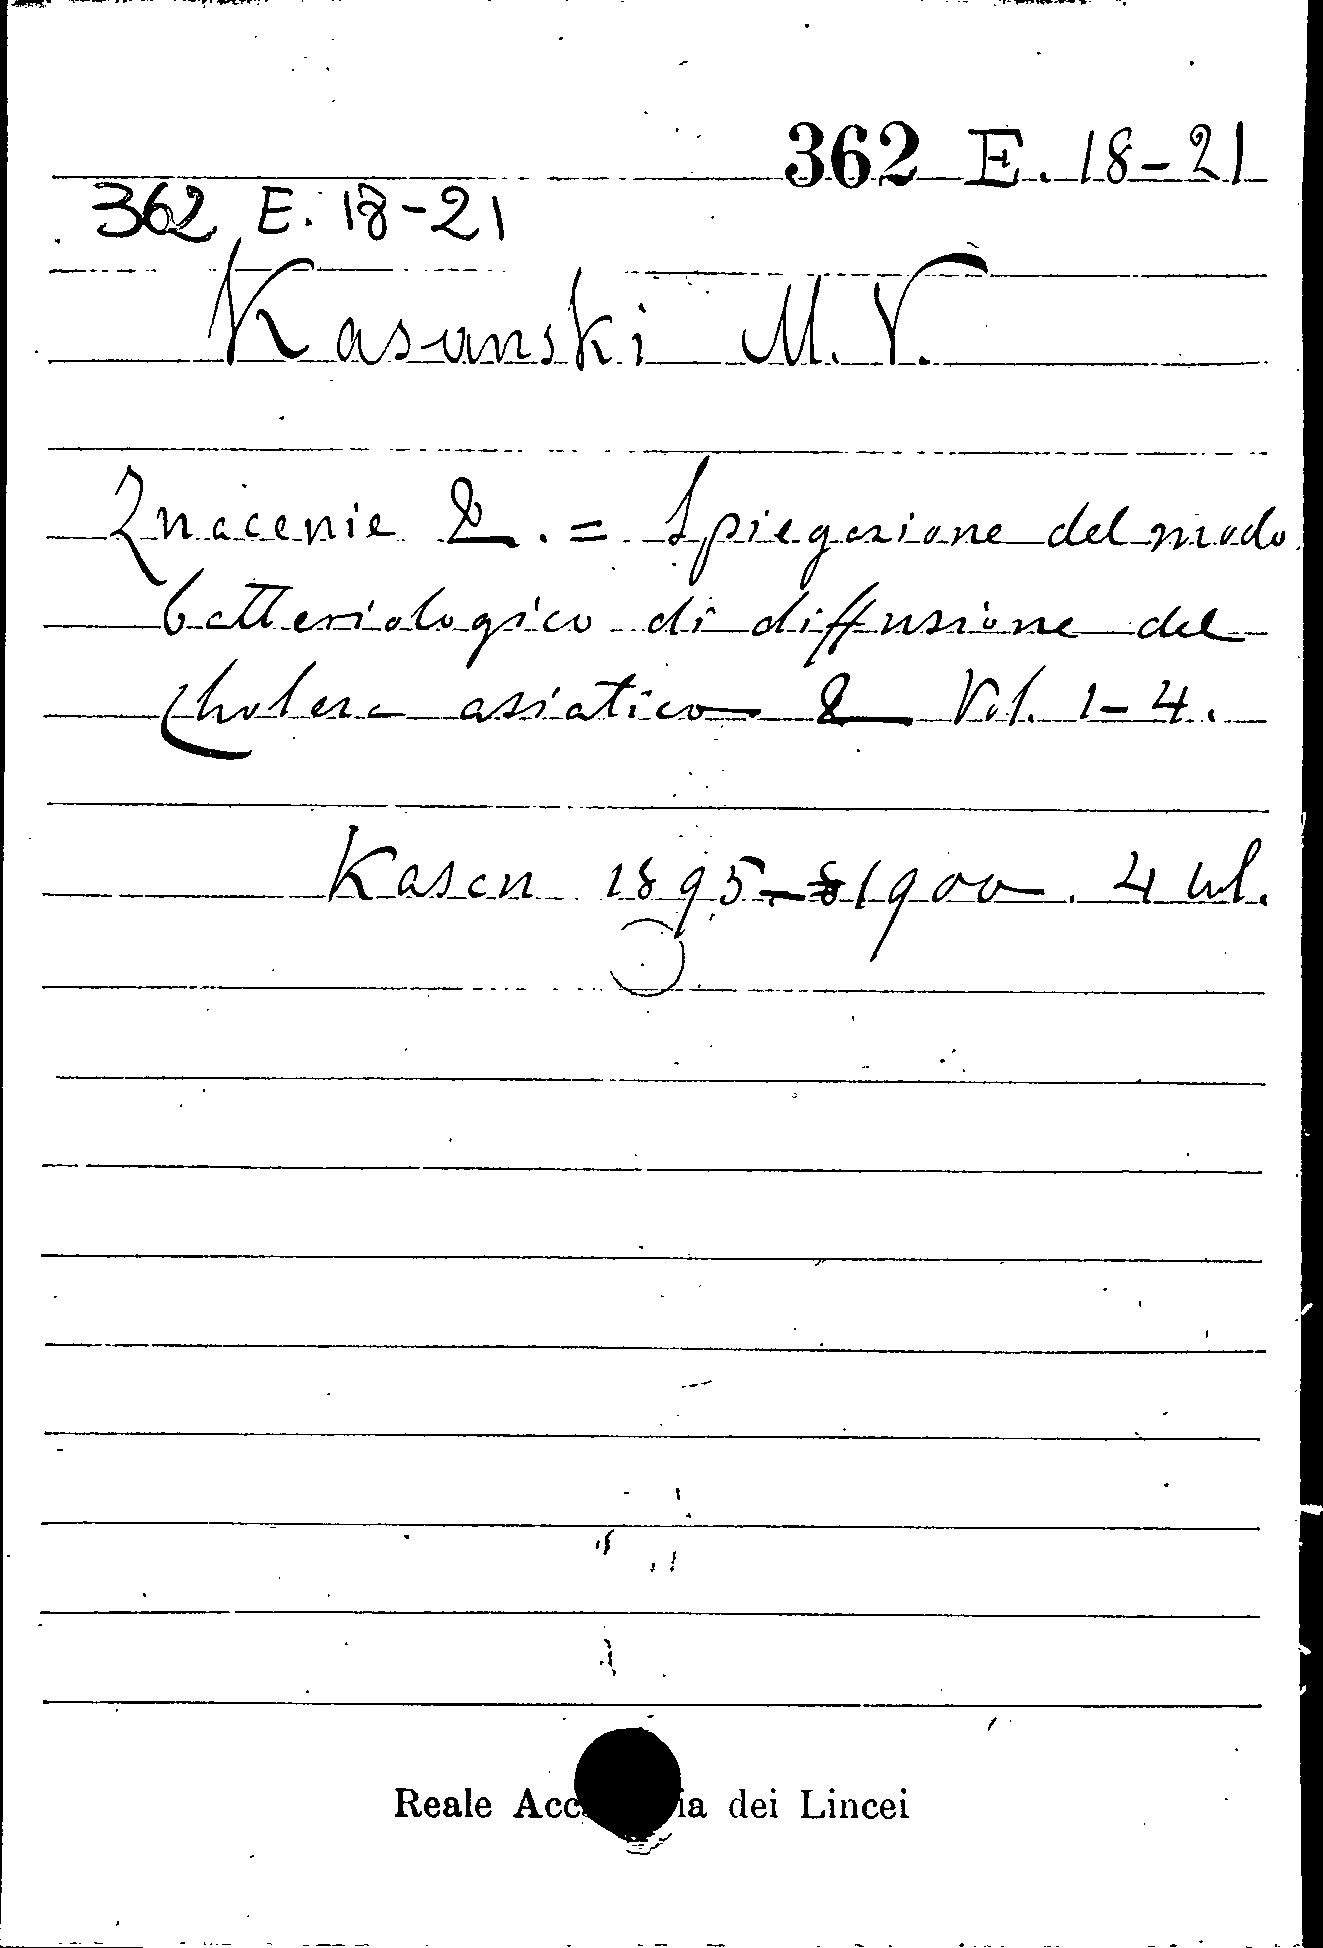 362 E. 18-21
362 E. 18-21
Kasanski M. V.
Znacenie &. = Spiegazione del modo
batteriologico di diffusione del
cholera asiatico & Vol. 1-4.
Kasan 1895-1900. 4 vol.
Reale Acc ia dei Lincei